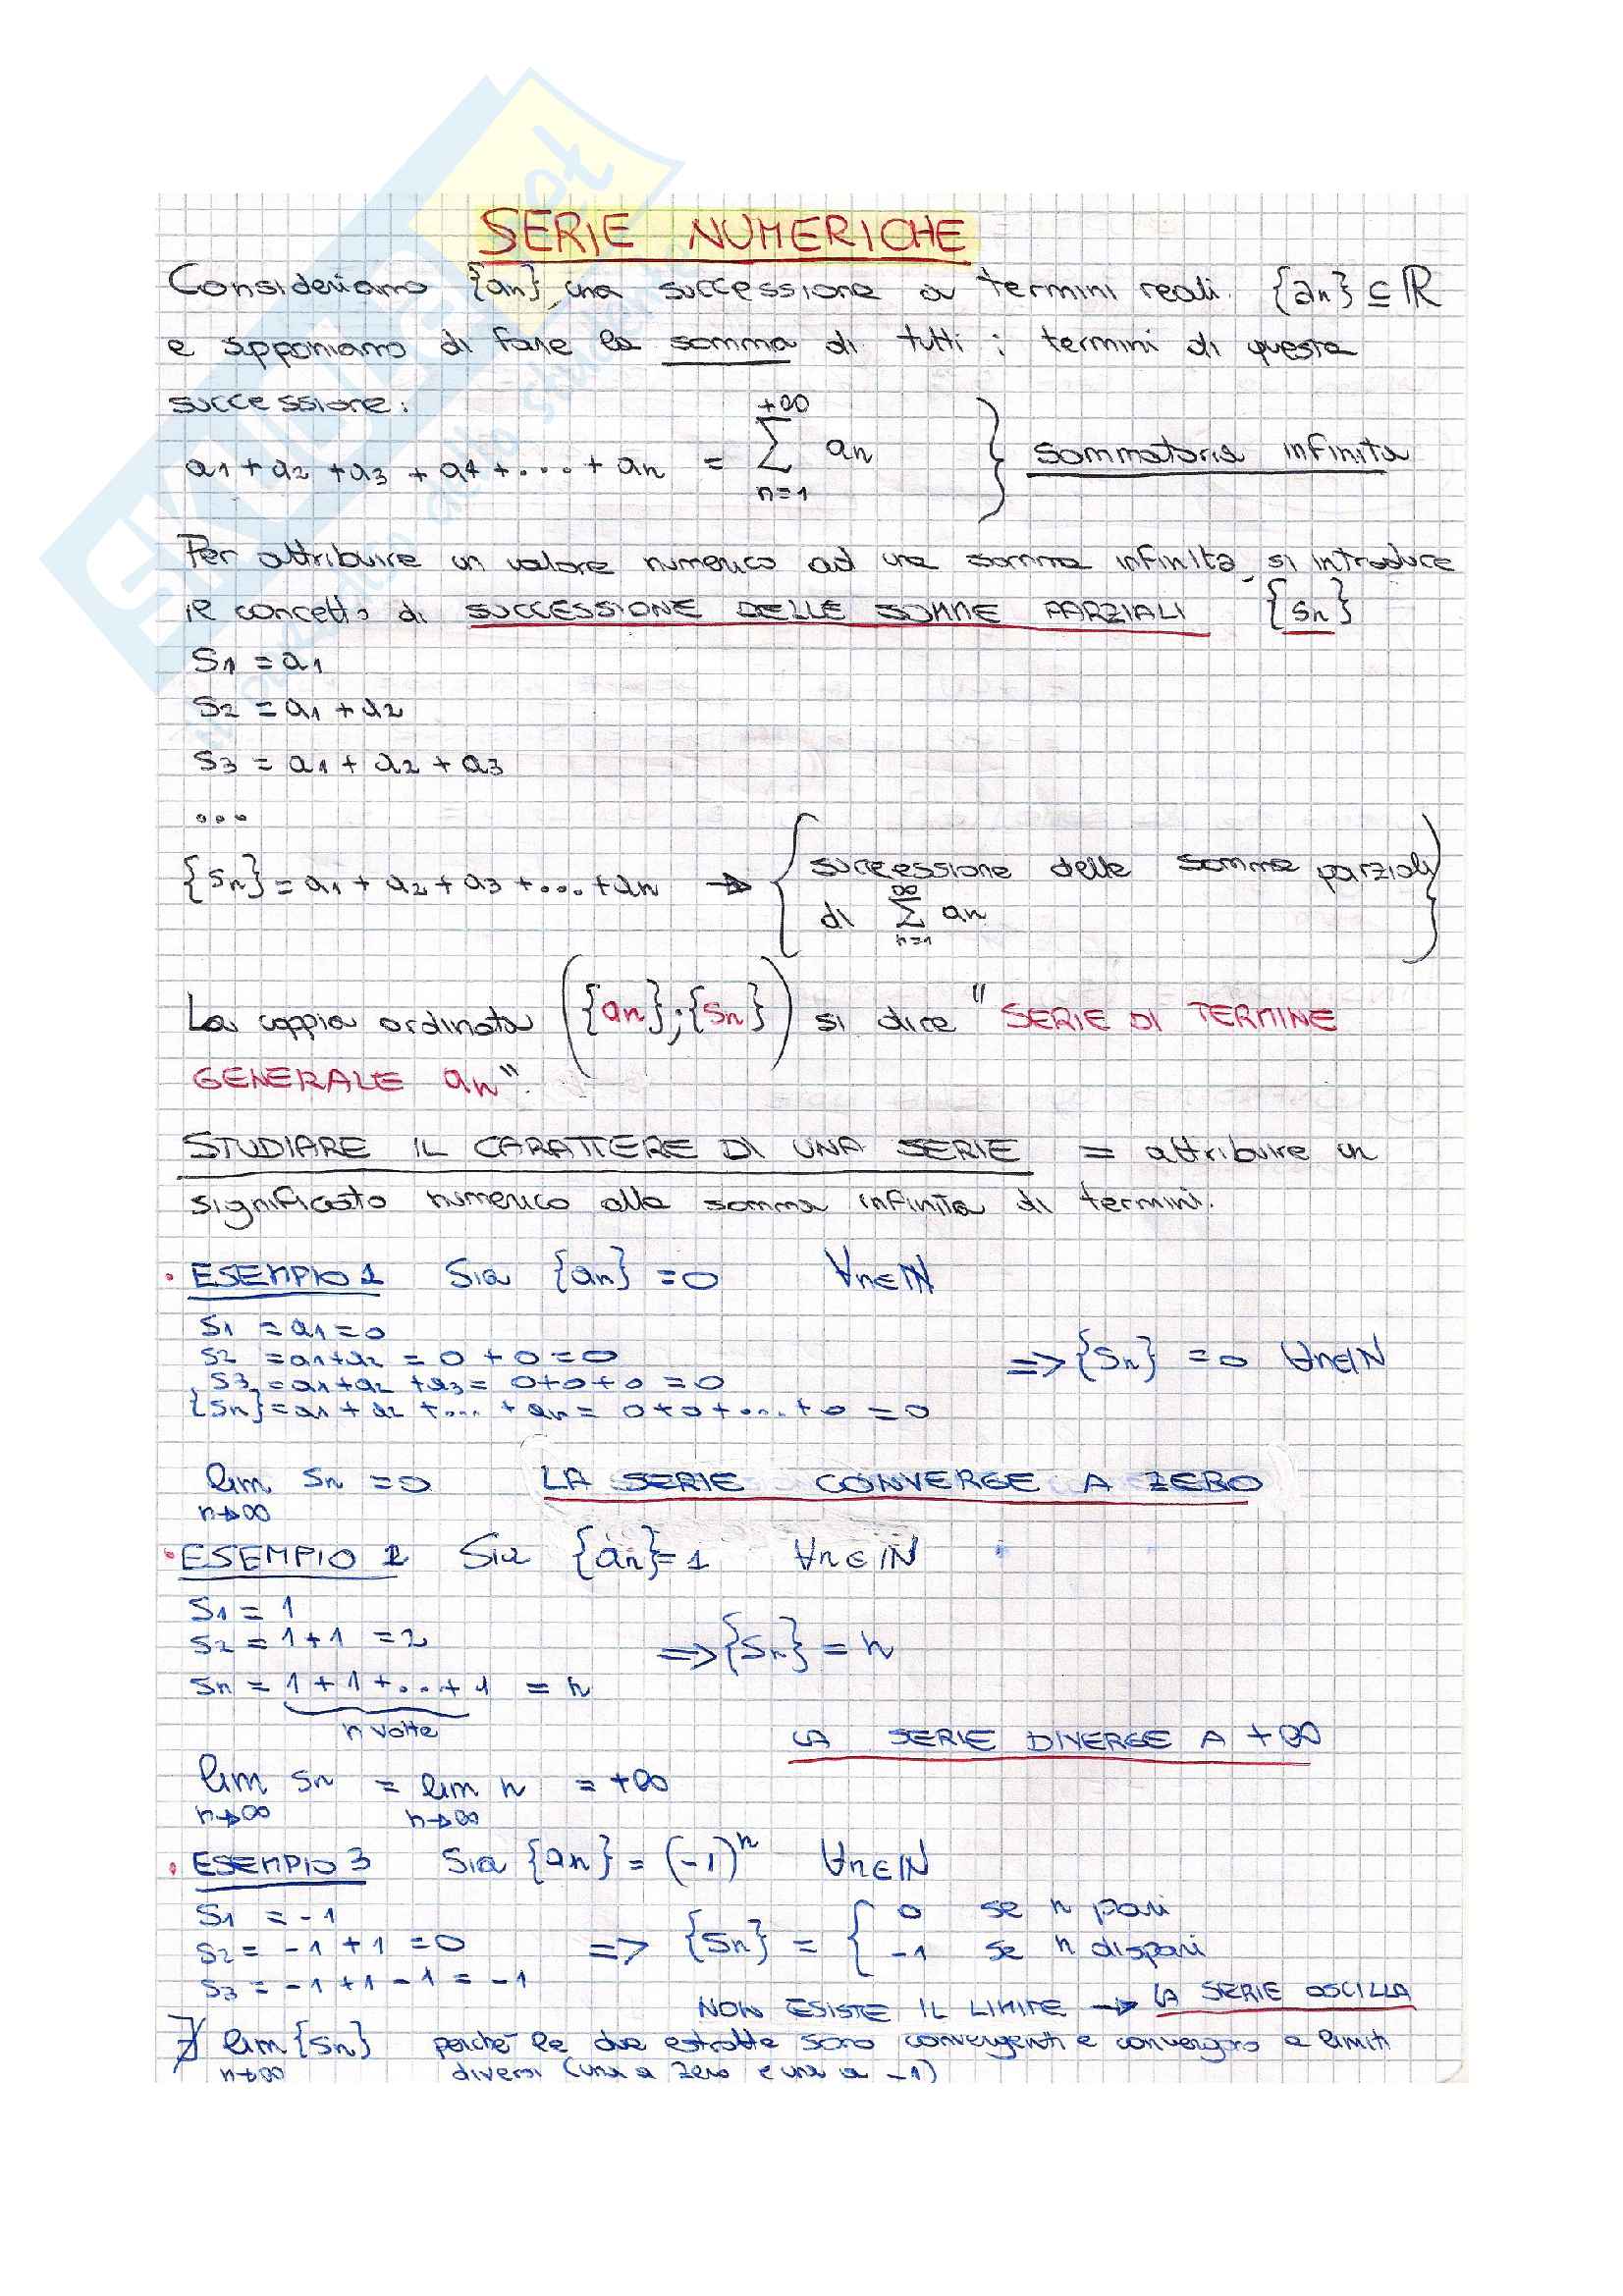 SERIE NUMERICHE
Consideriamo {an} una successione a termini reali. {an} ⊆ ℝ
e supponiamo di fare la somma di tutti i termini di questa
successione:
a1 + a2 + a3 + a4 + ... + an = +∞ ∑ n=1 an } sommatoria infinita
Per attribuire un valore numerico ad una somma infinita, si introduce
il concetto di SUCCESSIONE DELLE SOMME PARZIALI {Sn}
S1 = a1
S2 = a1 + a2
S3 = a1 + a2 + a3
...
{Sn} = a1 + a2 + a3 + ... + an → { successione delle somme parziali
di ∞ ∑ n=1 an }
La coppia ordinata ({an};{Sn}) si dice "SERIE DI TERMINE
GENERALE an".
STUDIARE IL CARATTERE DI UNA SERIE = attribuire un
significato numerico alla somma infinita di termini.
• ESEMPIO 1 Sia {an} = 0 ∀n∈ℕ
S1 = a1 = 0
S2 = a1 + a2 = 0 + 0 = 0 => {Sn} = 0 ∀n∈ℕ
S3 = a1 + a2 + a3 = 0 + 0 + 0 = 0
{Sn} = a1 + a2 + ... + an = 0 + 0 + ... + 0 = 0
lim Sn = 0 LA SERIE CONVERGE A ZERO
n→∞
• ESEMPIO 2 Sia {an} = 1 ∀n∈ℕ
S1 = 1
S2 = 1 + 1 = 2 => {Sn} = n
Sn = 1 + 1 + ... + 1 = n
n volte
LA SERIE DIVERGE A +∞
lim Sn = lim n = +∞
n→∞ n→∞
• ESEMPIO 3 Sia {an} = (-1)^n ∀n∈ℕ
S1 = -1
S2 = -1 + 1 = 0 => {Sn} = { 0 se n pari
-1 se n dispari
S3 = -1 + 1 - 1 = -1
NON ESISTE IL LIMITE → LA SERIE OSCILLA
∄ lim {Sn} perché le due estratte sono convergenti e convergono a limiti
n→∞ diversi (una a zero e una a -1)
SKUOLA.net